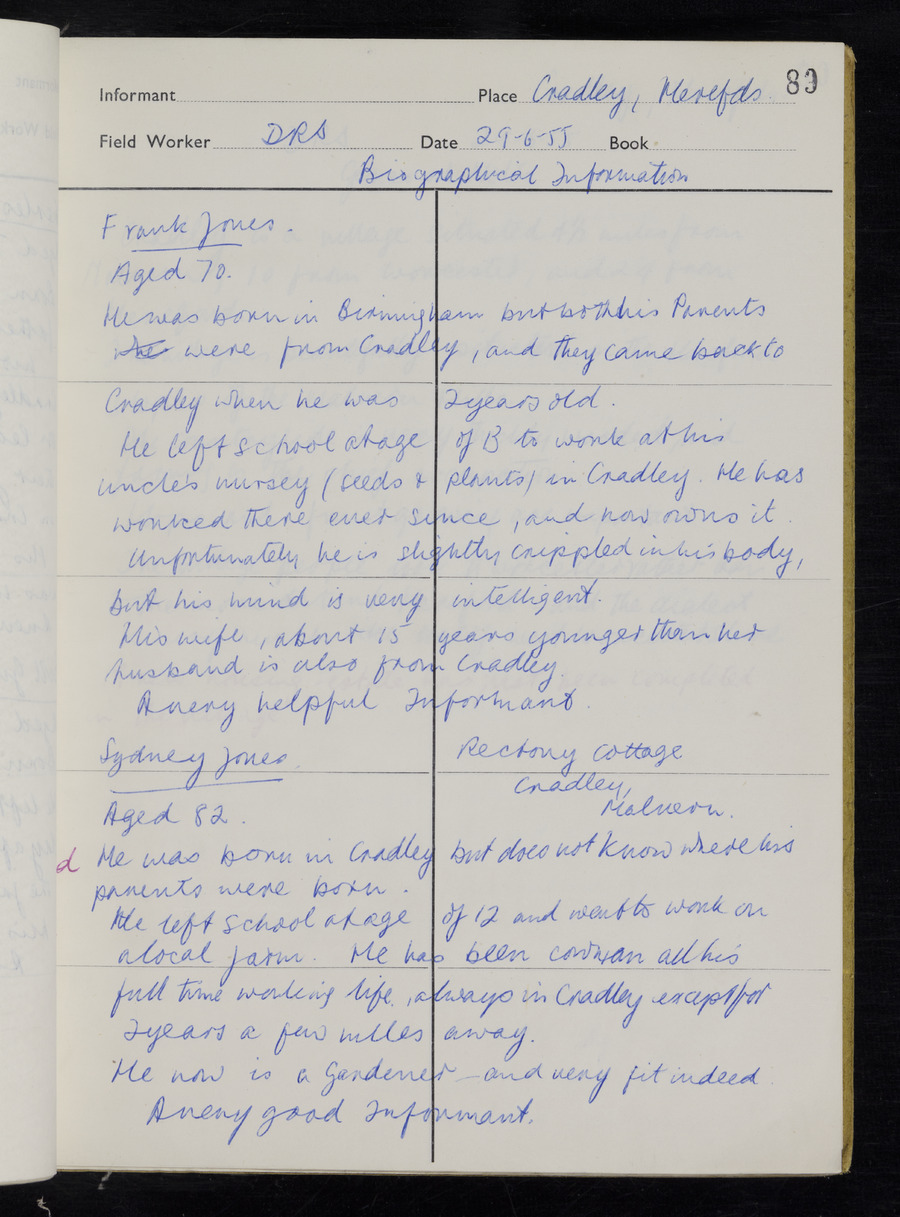 89
Informant Place Cradley, Herefds.
Field Worker DRS Date 29-6-55 Book
Biographical Information
Frank Jones.
Aged 70.
He was born in Birmingham but both his Parents
were from Cradley, and they came back to
Cradley when he was 2 years old.
He left school at age of 13 to work at his
uncle's nursey (seeds & plants) in Cradley. He has
worked there ever since, and now owns it.
Unfortunately he is slightly crippled in his body,
but his mind is very intelligent.
His wife, about 15 years younger than her
husband is also from Cradley
A very helpful Informant.
Sydney Jones. Rectory Cottage
Cradley,
Malvern.
Aged 82.
d He was born in Cradley but does not know where his
parents were born.
He left school at age of 12 and went to work on
a local farm. He has been cowman all his
full time working life, always in Cradley except for
2 years a few miles away.
He now is a Gardener - and very fit indeed.
A very good Informant.